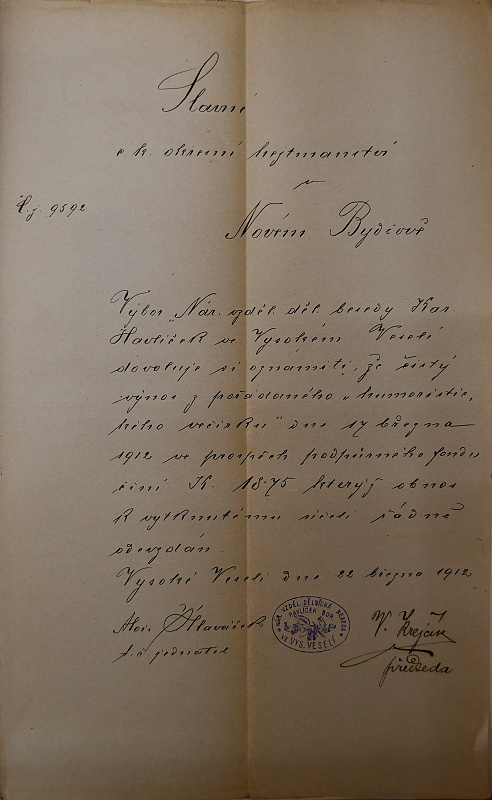 Slavné
c. k. okresní hejtmanství
v
Č. j. 9592
Novém Bydžově
Výbor „Nár. vzděl. děl. besedy Kar.
Havlíček ve Vysokém Veselí
dovoluje si oznámiti, že čistý
výnos z pořádaného „humoristic,
kého večírku" dne 17 března
1912 ve prospěch podpůrného fondu
činí K. 18.75 kterýž obnos
k vytknutému účeli řádně
odevzdán.
Vysoké Veselí dne 22 března 1912
NÁR. VZDĚL. DĚLNICKÁ BESEDA
HAVLÍČEK BOR.
VE VYS. VESELÍ
Alois Hlaváček
t. č. jednatel
V. Krejčík
předseda